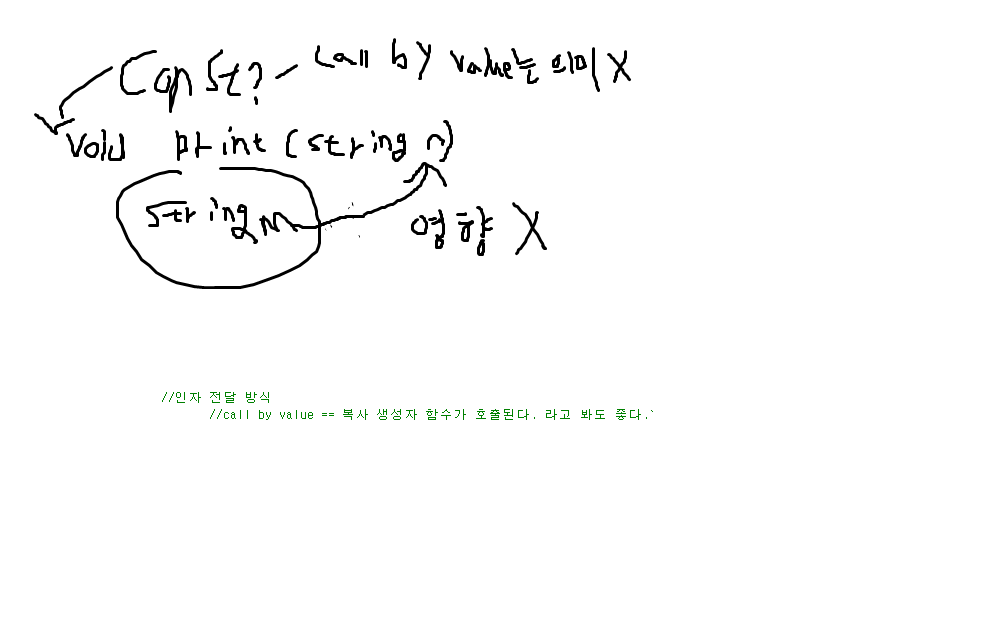 Const? - Call by value는 의미 X
void print (string n)
string m
영향 X
//인자 전달 방식
//call by value == 복사 생성자 함수가 호출된다. 라고 봐도 좋다.`